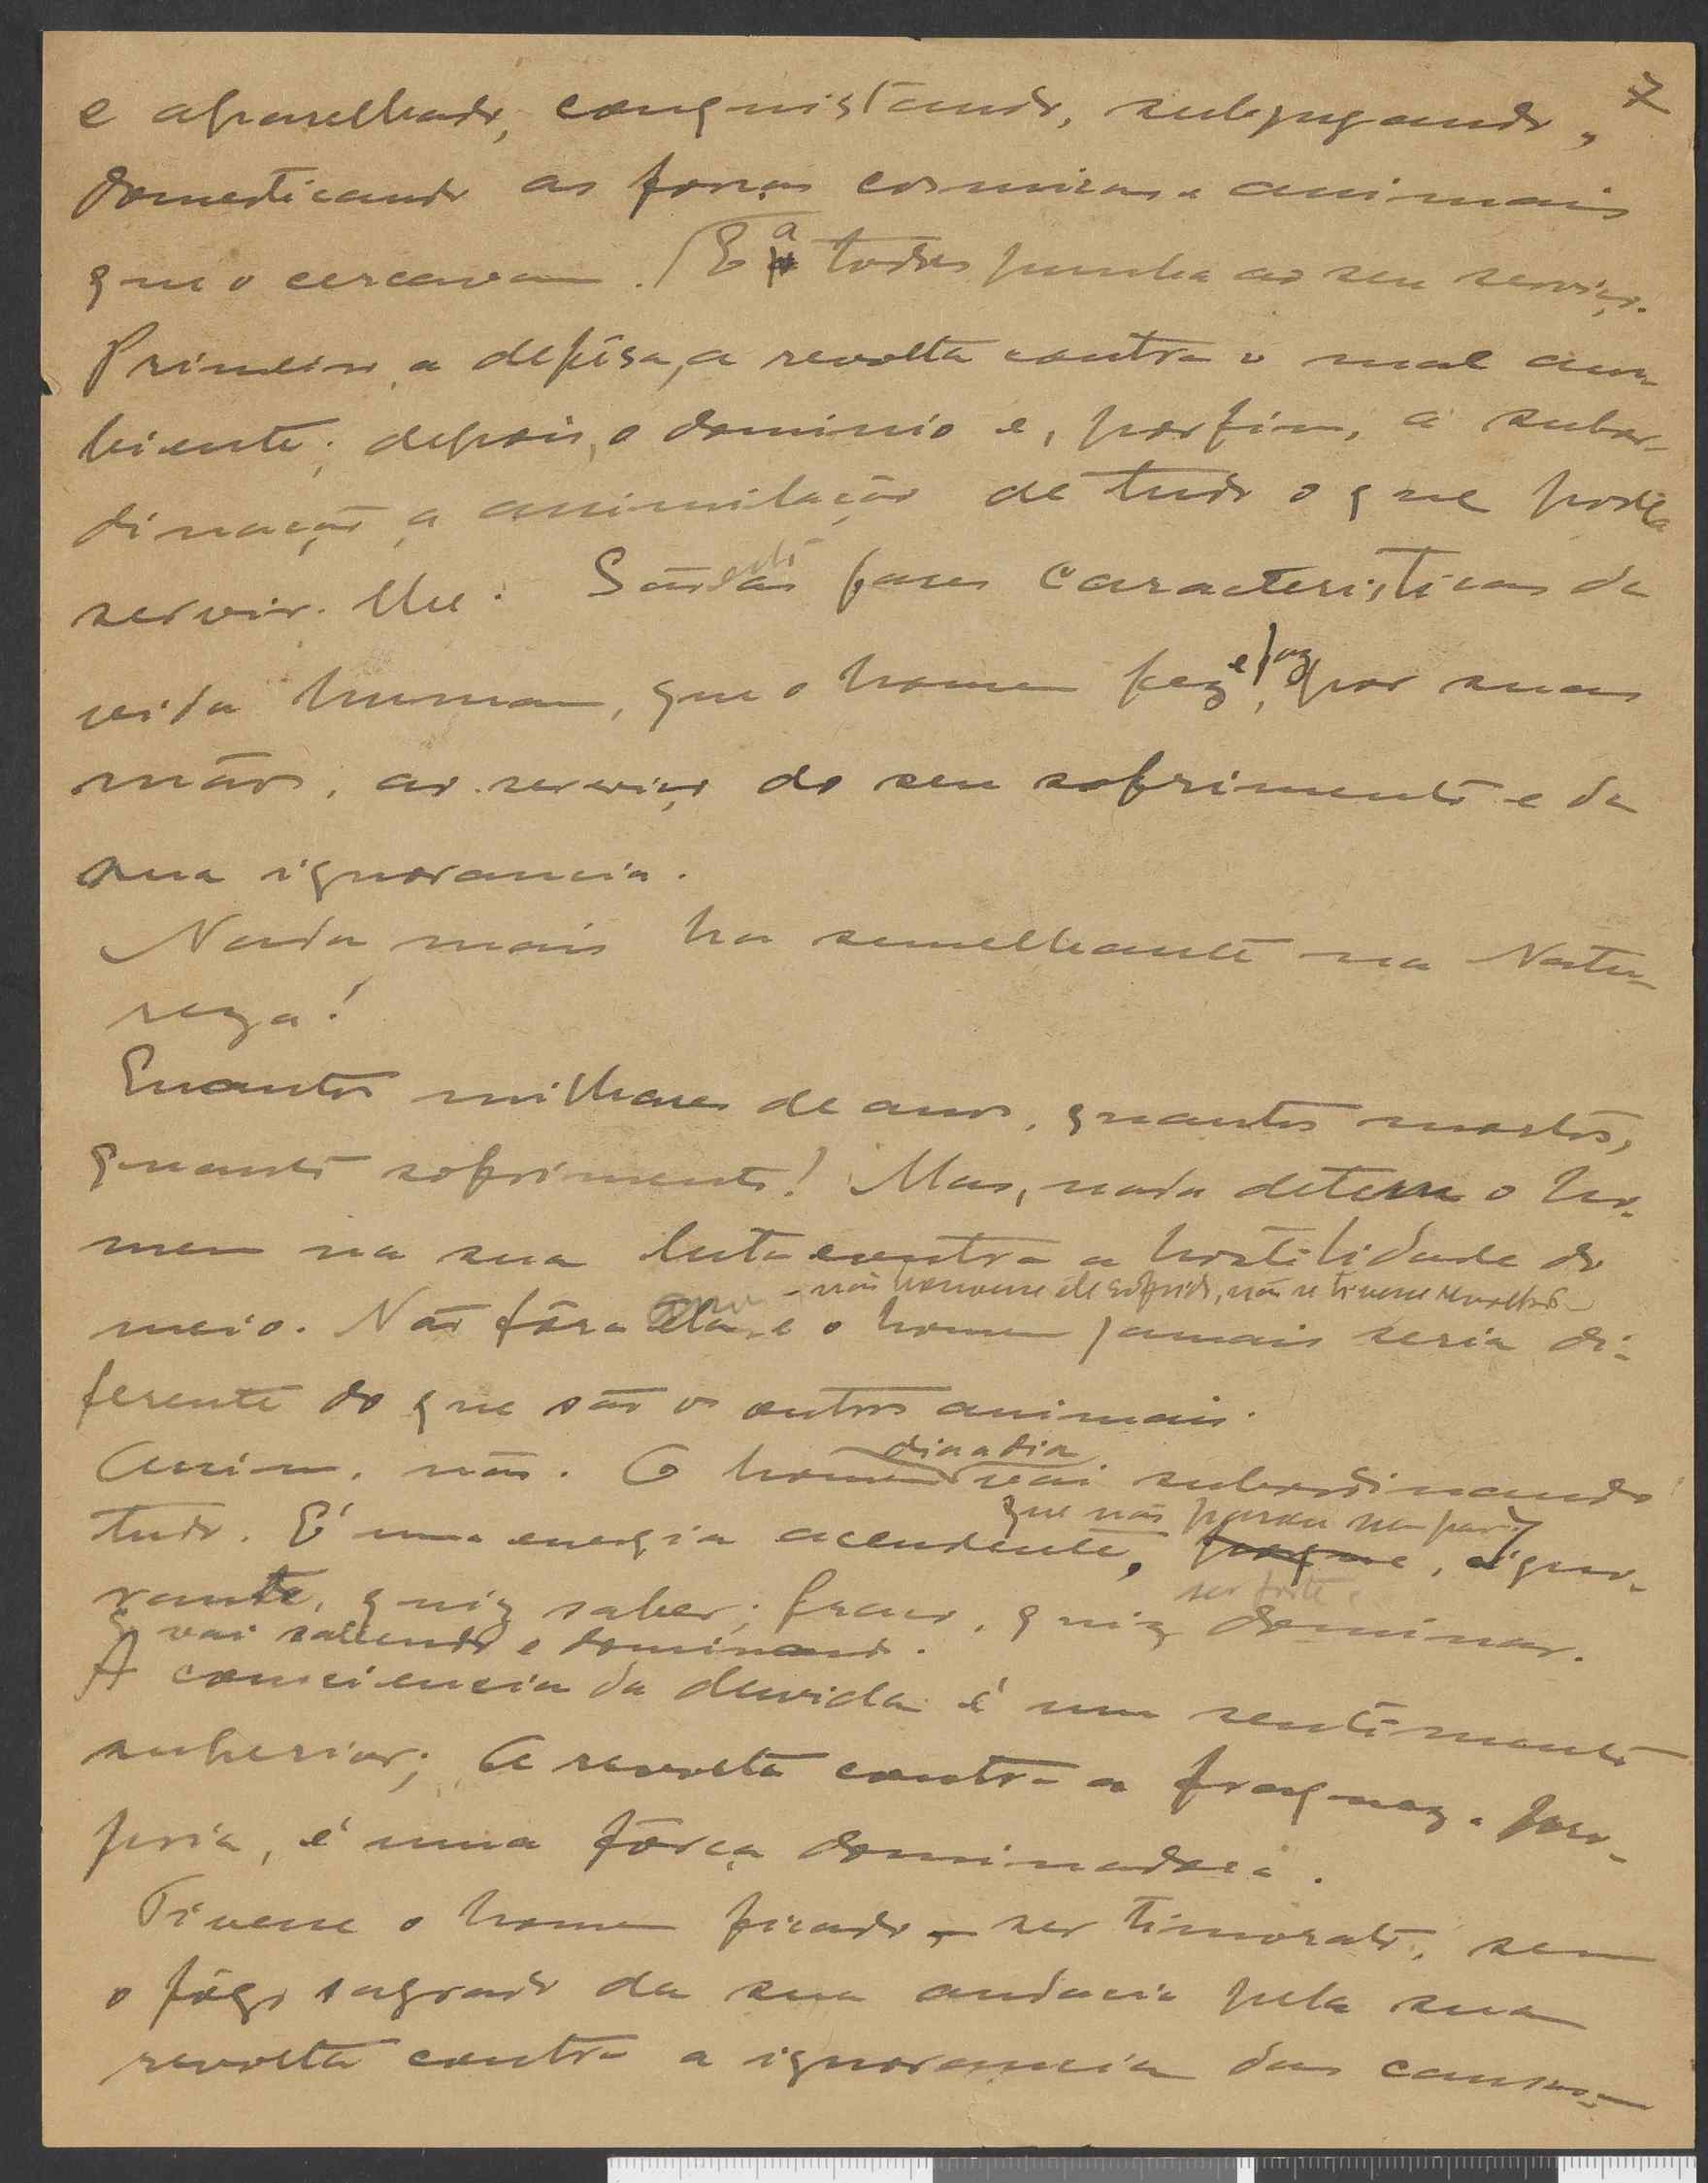 7
e aparelhado, conquistando, subjugando,
domesticando as forças cosmicas e animais
que o cercavam. E a todos punha ao seu serviço.
Primeiro, a defêsa, a revolta contra o mal am-
biente; depois, o dominio e, porfim, a subor-
dinação, a assimilação de tudo o que podia
servir-lhe. São as fases caracteristicas da
vida humana, que o homem fez e faz, por suas
mãos, ao serviço do seu sofrimento e da
sua ignorancia.
Nada mais ha semelhante na Natu-
reza!
Quantos milhares de anos, quantos mortos,
quanto sofrimento! Mas, nada detem o ho-
mem na sua luta contra a hostilidade do
- não houvesse ele sofrido, não se tivesse revoltado -
meio. Não fôra e o homem jamais seria di-
ferente do que são os outros animais.
dia a dia
Assim, não. O homem vai subordinando
que não parou nem para
tudo. É uma energia acendente, porque, ignor-
ser forte,
rante, quiz saber; fraco, quiz dominar.
E vai sabendo e dominando.
A consciencia da duvida é um sentimento
superior; a revolta contra a fraqueza pro-
pria, é uma fôrça dominadora.
Tivesse o homem ficado, ser timorato, sem
o fôgo sagrado da sua audacia pela sua
revolta contra a ignorancia das causas